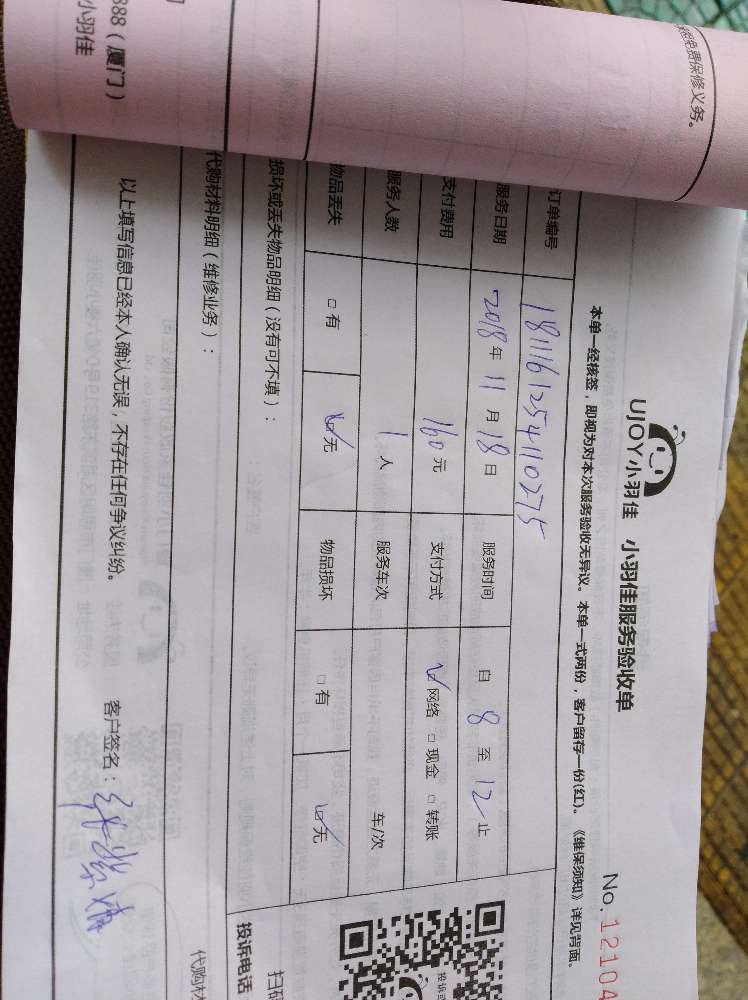 UJOY小羽佳 小羽佳服务验收单
No.12104
本单一经核签，即视为对本次服务验收无异议。本单一式两份，客户留存一份(红)。《维保须知》详见背面。
订单编号 1811161254110275
服务日期 2018年11月18日 服务时间 自8至12止
支付费用 160元 支付方式 ☑网络 □现金 □转账
服务人数 1人 服务车次 车/次
物品丢失 □有 ☑无 物品损坏 □有 ☑无
损坏或丢失物品明细（没有可不填）：
代购材料明细（维修业务）：
以上填写信息已经本人确认无误，不存在任何争议纠纷。 客户签名：
投诉电话
扫码
代购材
免费保修义务。
888（厦门）
小羽佳